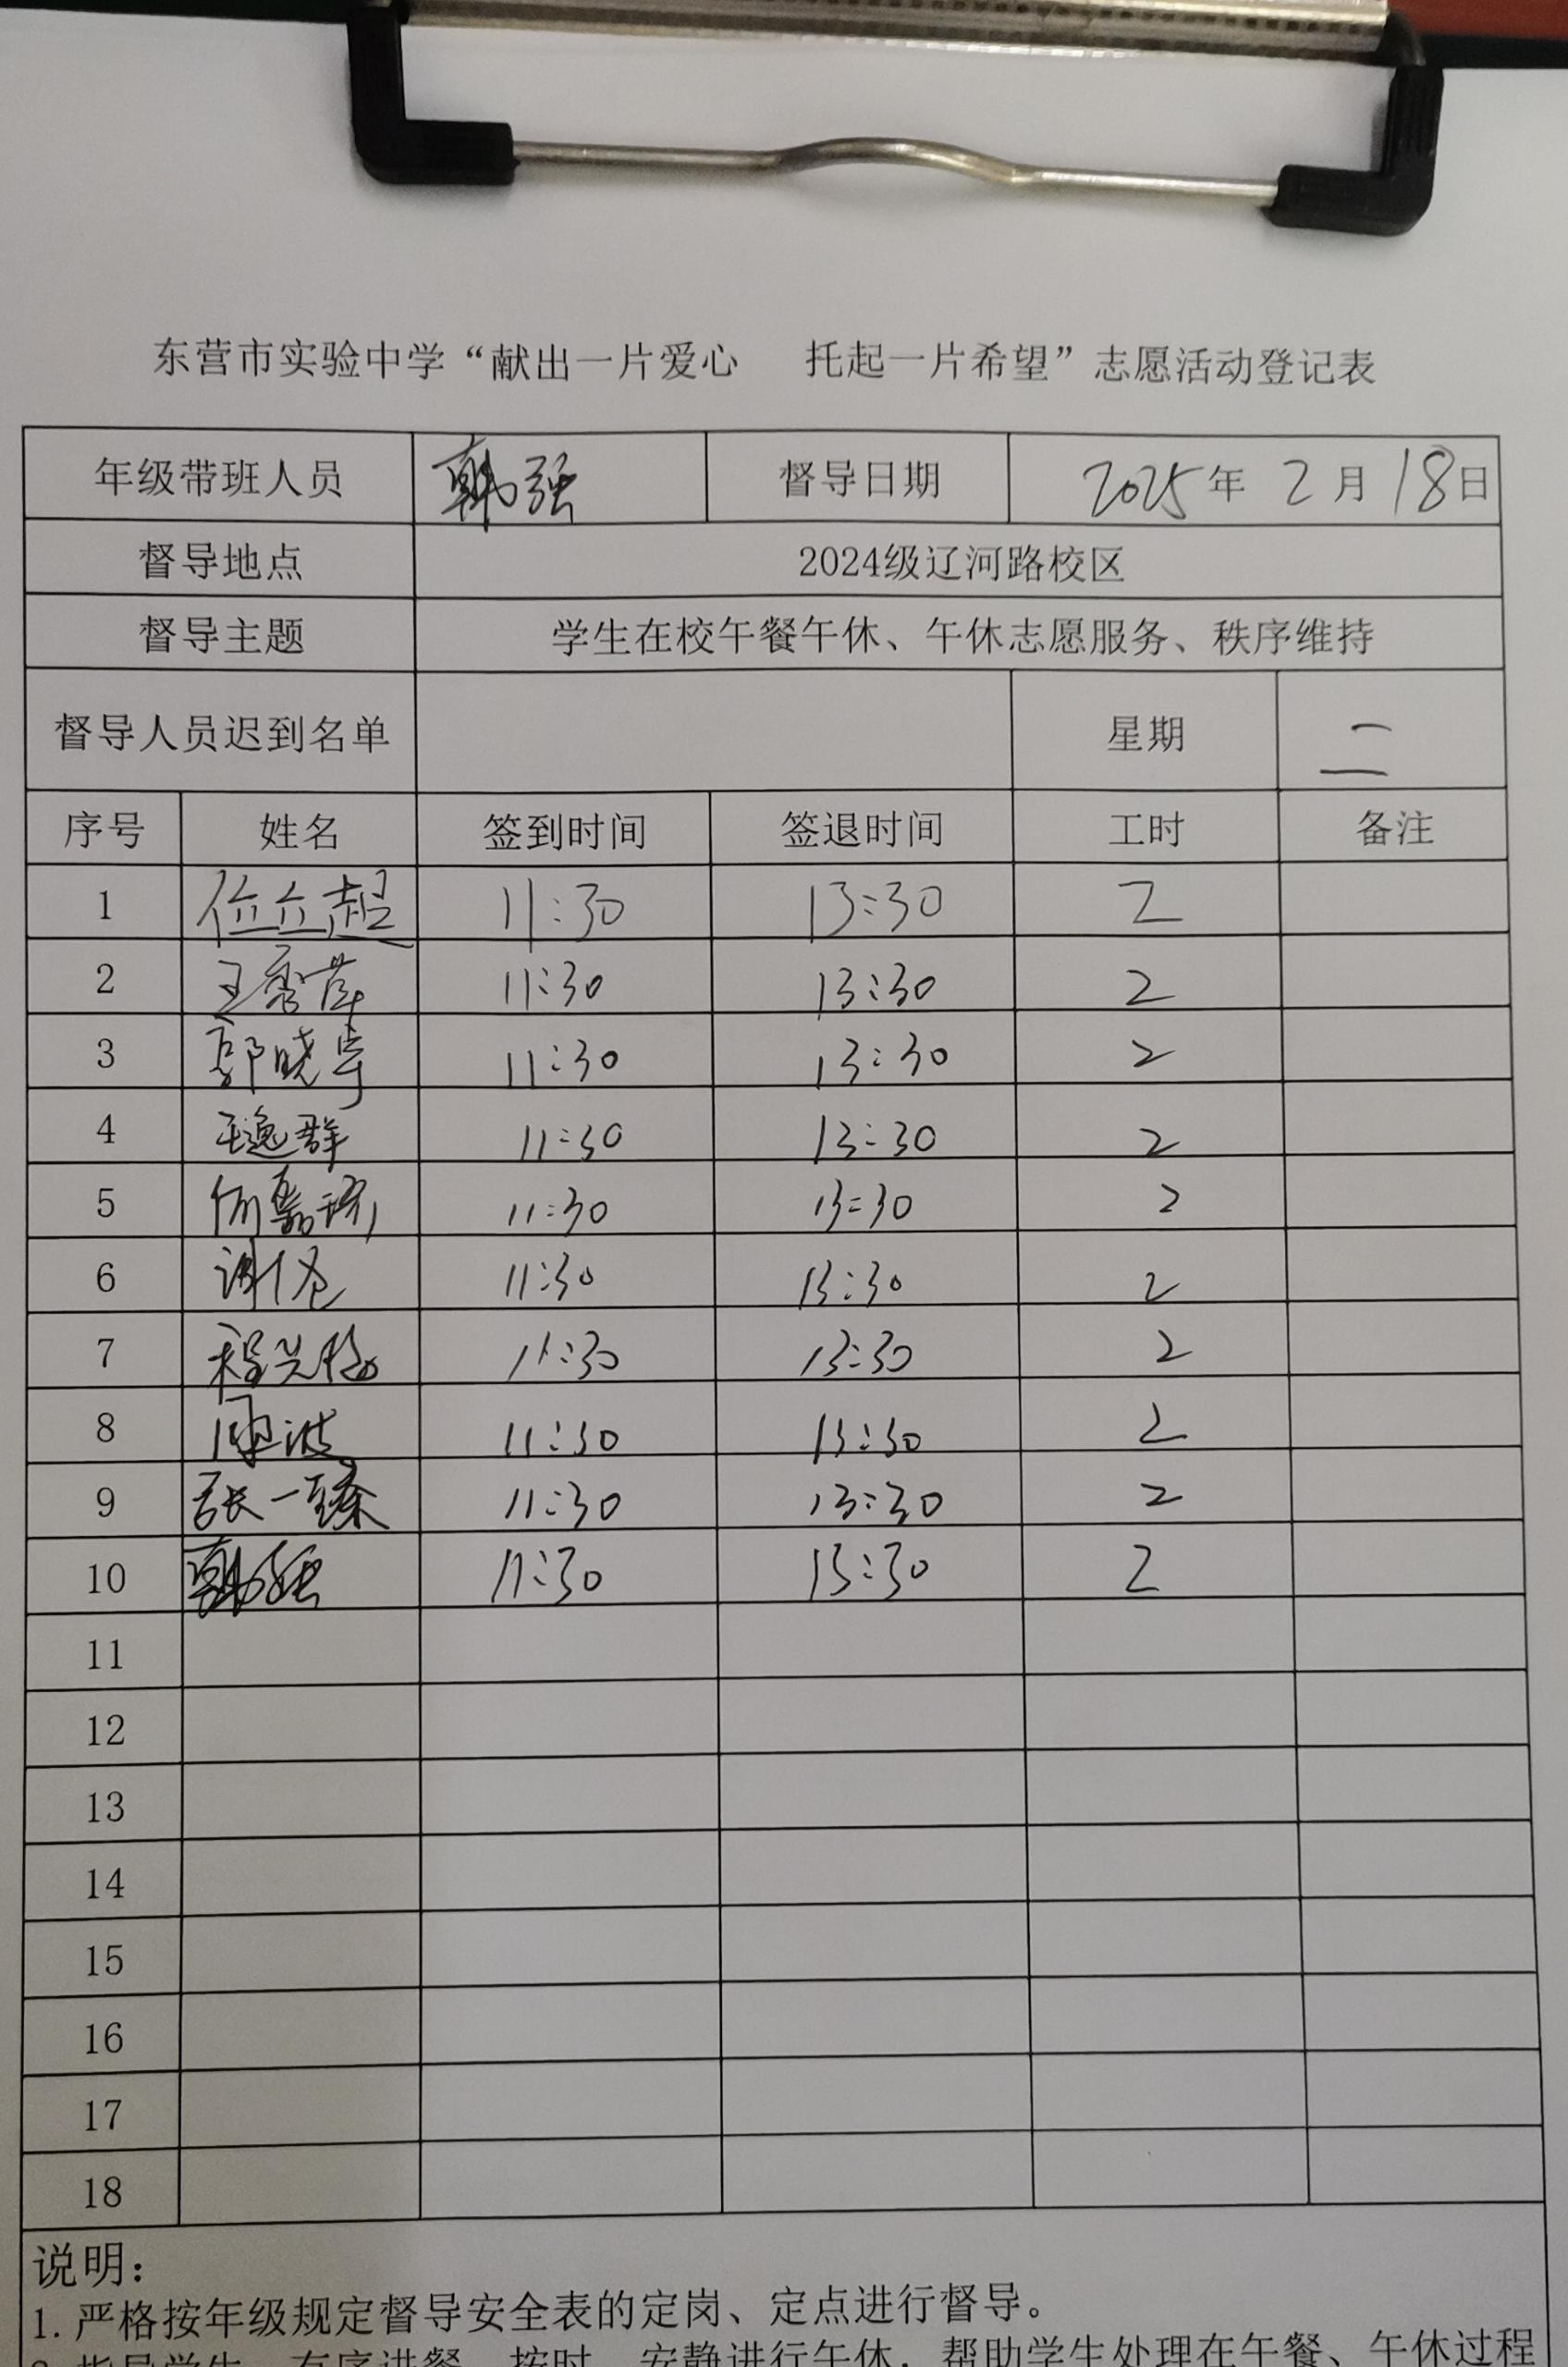 东营市实验中学“献出一片爱心 托起一片希望”志愿活动登记表
年级带班人员 韩强 督导日期 2025年 2月 18日
督导地点 2024级辽河路校区
督导主题 学生在校午餐午休、午休志愿服务、秩序维持
督导人员迟到名单 星期 二
序号 姓名 签到时间 签退时间 工时 备注
1 位立超 11:30 13:30 2
2 王秀萍 11:30 13:30 2
3 郭晓宇 11:30 13:30 2
4 王逸群 11:30 13:30 2
5 11:30 13:30 2
6 11:30 13:30 2
7 程兴 11:30 13:30 2
8 波 11:30 13:30 2
9 张一臻 11:30 13:30 2
10 韩强 11:30 13:30 2
11
12
13
14
15
16
17
18
说明:
1. 严格按年级规定督导安全表的定岗、定点进行督导。
2. 指导学生 有序进餐 按时 安静进行午休, 帮助学生处理在午餐、午休过程